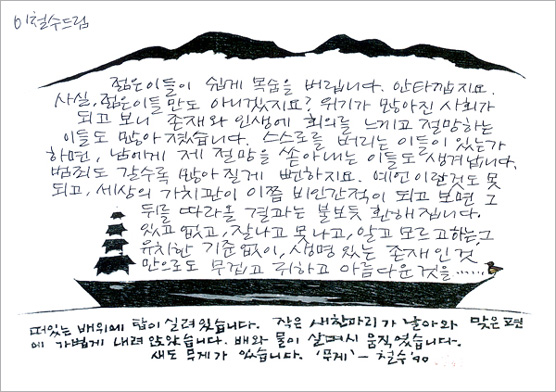 이철수드림
젊은이들이 쉽게 목숨을 버립니다. 안타깝지요.
사실, 젊은이들만도 아니겠지요? 위기가 많아진 사회가
되고 보니 존재와 인생에 회의를 느끼고 절망하는
이들도 많아졌습니다. 스스로를 버리는 이들이 있는가
하면, 남에게 제 절망을 쏟아내는 이들도 생겨납니다.
범죄도 갈수록 많아질게 뻔하지요. 예언이랄것도 못
되고, 세상의 가치관이 이쯤 비인간적이 되고 보면 그
뒤를 따라올 결과는 불보듯 환해집니다.
있고 없고, 잘나고 못나고, 알고 모르고하는, 그
유치한 기준없이, 생명있는 존재인것
만으로도 무겁고 귀하고 아름다운것을......
떠있는 배위에 탑이 실려있습니다. 작은 새한마리가 날아와 맞은편
에 가볍게 내려 앉았습니다. 배와 물이 살며시 움직였습니다.
새도 무게가 있습니다. '무게' - 철수 '90